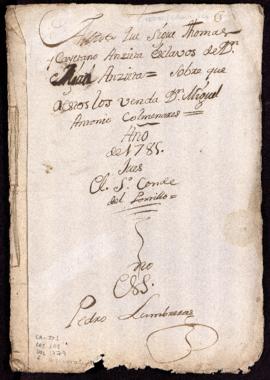 que Sigue Thomas
y Cayetano Anzieta Esclavos de Dn.
Juan Anzieta = Sobre que
los venda Dn. Miguel
Antonio Colmenares =
Año
de 1785.
Juez
El Sr. Conde
del Portillo =
no
Pedro Lumbreras